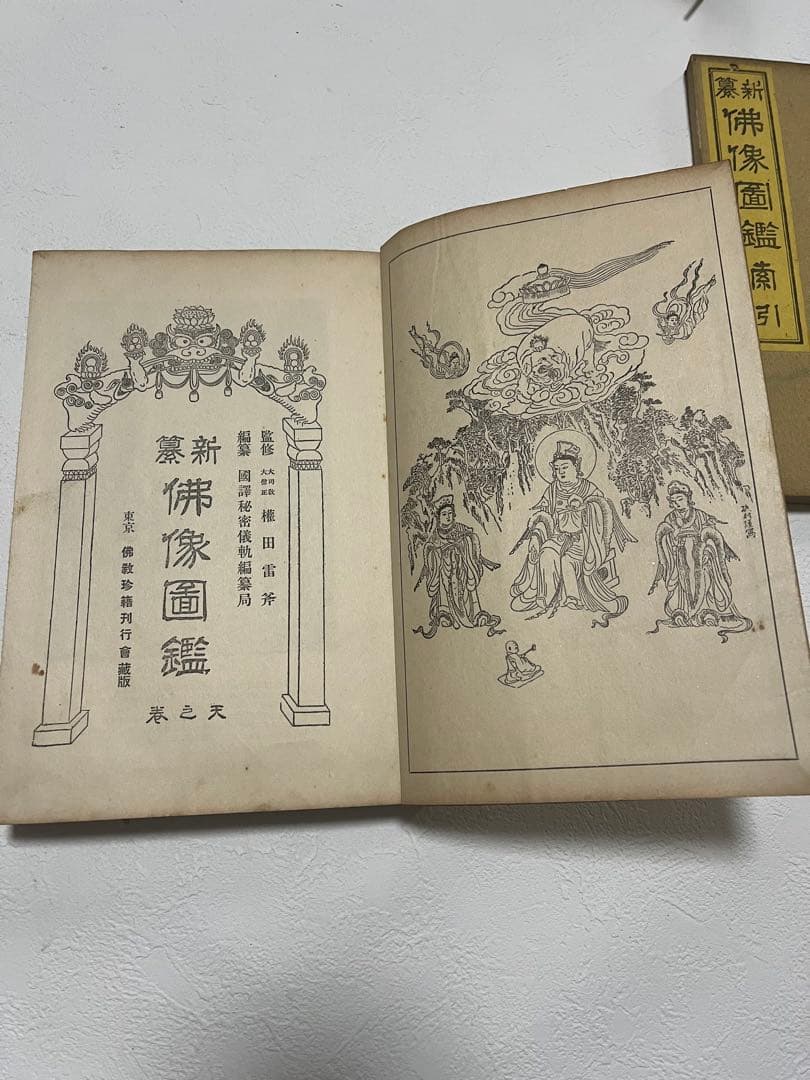 監修 大司教 大僧正 權田雷斧
編纂 國譯秘密儀軌編纂局
新纂
佛像圖鑑
天之卷
東京 佛教珍籍刊行會藏版
新纂
佛像圖鑑索引